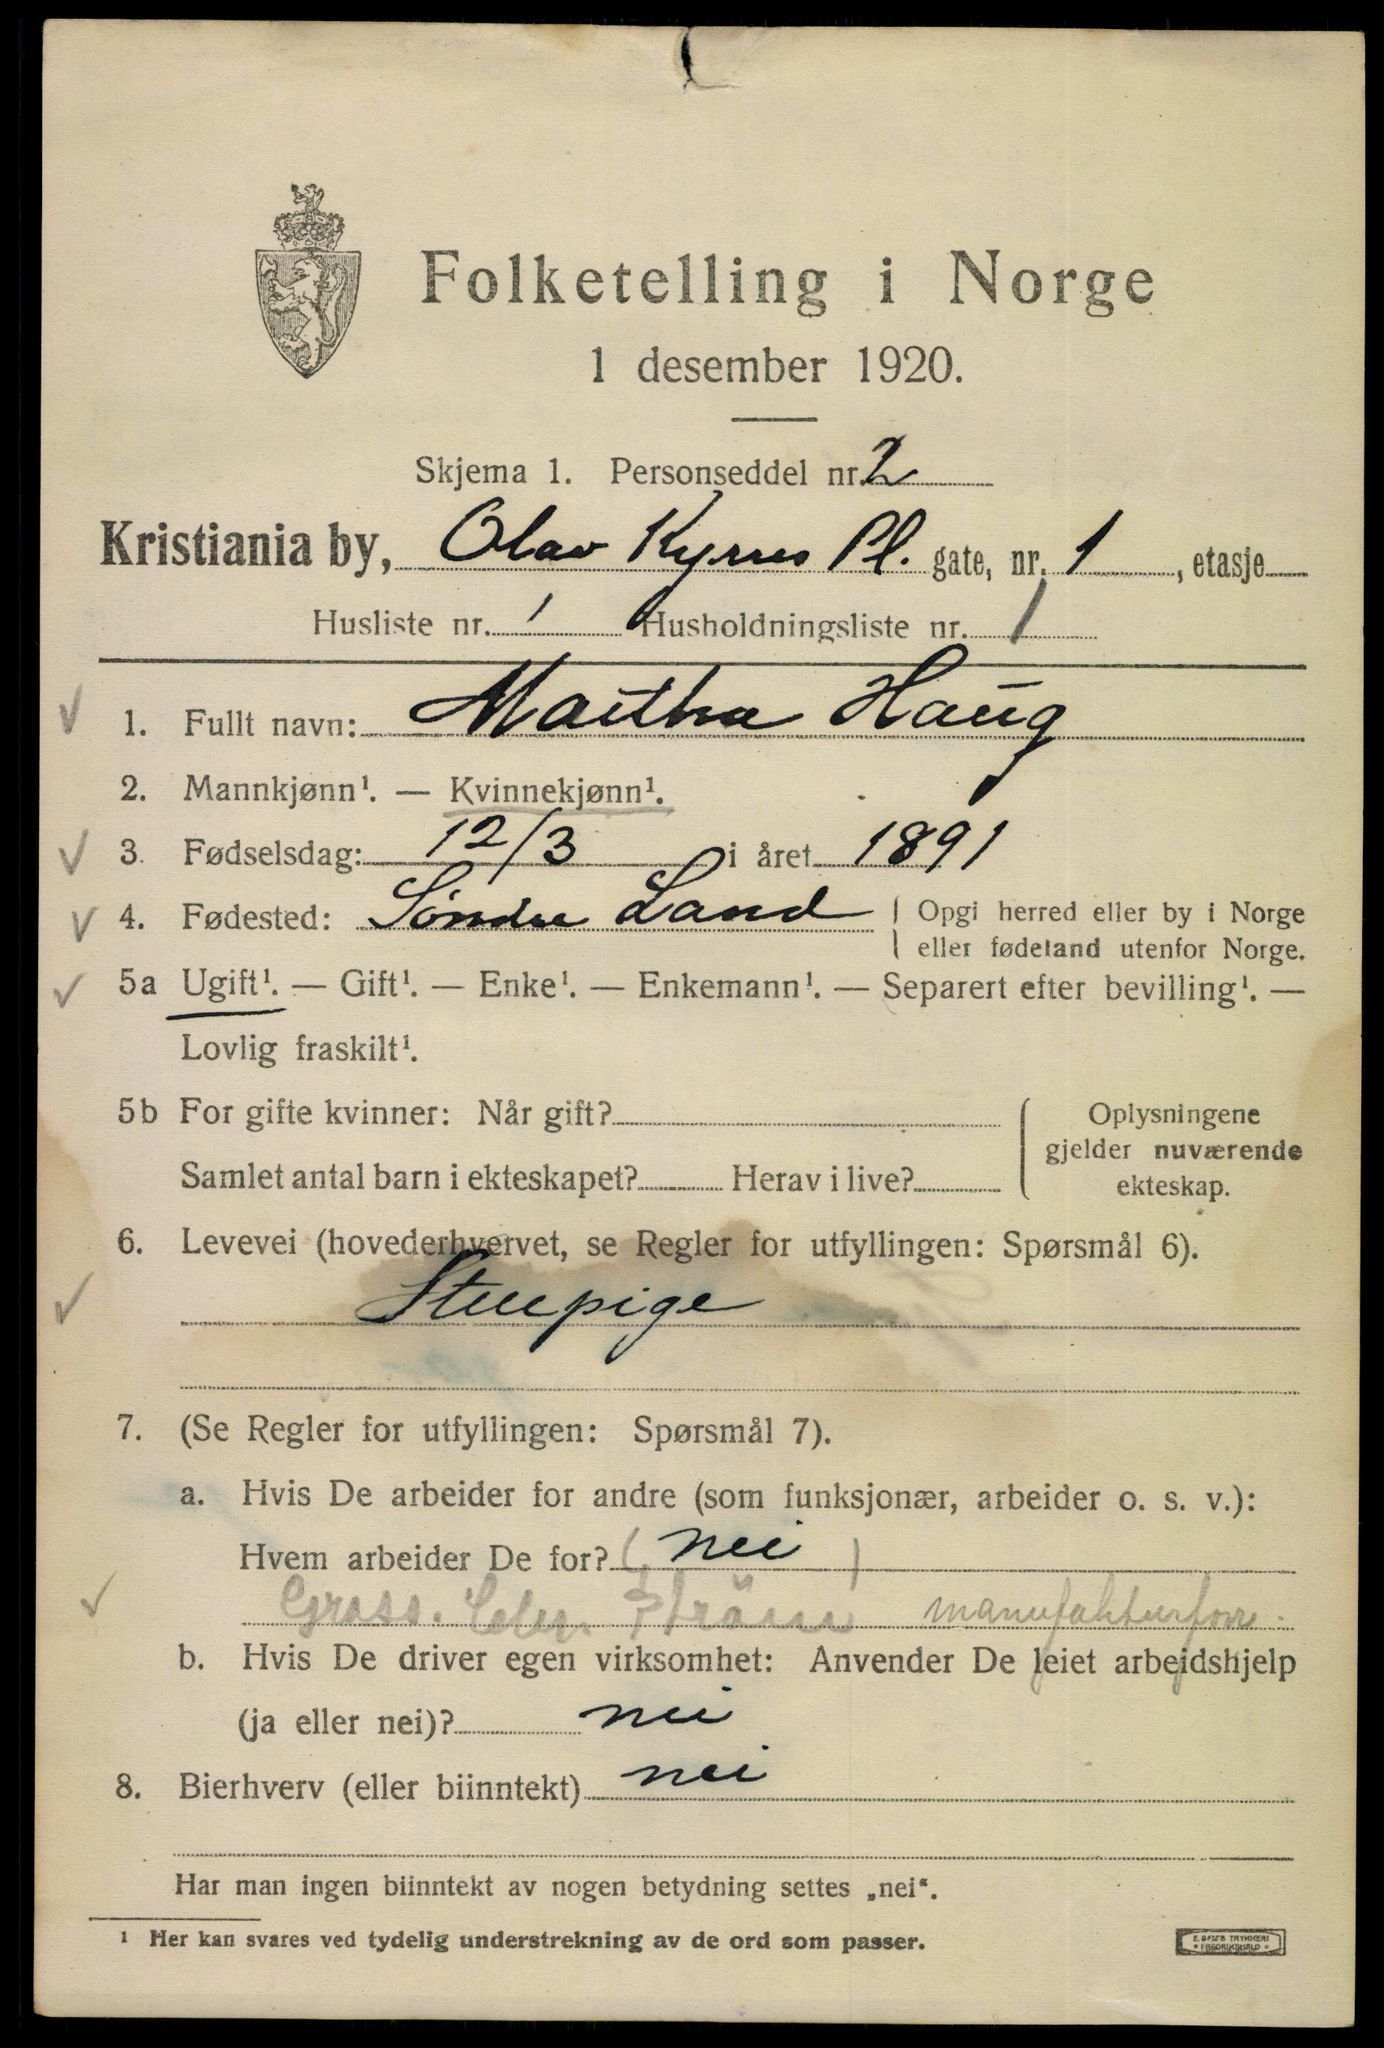 Folketelling i Norge
1 desember 1920.
Skjema 1. Personseddel nr. 2
Kristiania by, Olav Kyrres Pl. gate, nr. 1, etasje
Husliste nr. 1 Husholdningsliste nr. 1
1. Fullt navn: Martha Haug
2. Mannkjønn¹. — Kvinnekjønn¹.
3. Fødselsdag: 12/3 i året 1891
4. Fødested: Søndre Land Opgi herred eller by i Norge
eller fødeland utenfor Norge.
5a Ugift¹. — Gift¹. — Enke¹. — Enkemann¹. — Separert efter bevilling¹. —
Lovlig fraskilt¹.
5b For gifte kvinner: Når gift? Oplysningene
gjelder nuværende
Samlet antal barn i ekteskapet? Herav i live? ekteskap.
6. Levevei (hovederhvervet, se Regler for utfyllingen: Spørsmål 6).
Stuepige
7. (Se Regler for utfyllingen: Spørsmål 7).
a. Hvis De arbeider for andre (som funksjonær, arbeider o. s. v.):
Hvem arbeider De for? (nei)
Gross. Ström manufakturforr.
b. Hvis De driver egen virksomhet: Anvender De leiet arbeidshjelp
(ja eller nei)? nei
8. Bierhverv (eller biinntekt) nei
Har man ingen biinntekt av nogen betydning settes „nei“.
¹ Her kan svares ved tydelig understrekning av de ord som passer.
E. SEM'S TRYKKERI
• FREDRIKSHALD •